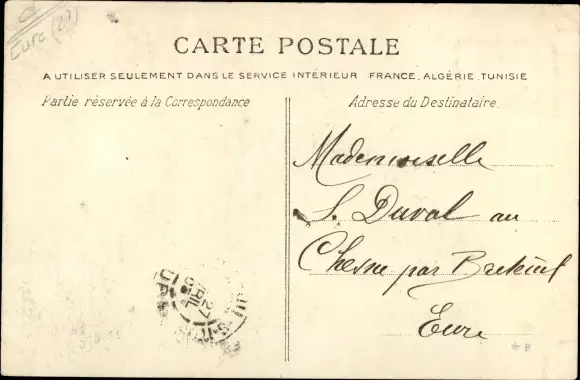 Eure (27)
CARTE POSTALE
A UTILISER SEULEMENT DANS LE SERVICE INTÉRIEUR FRANCE, ALGÉRIE, TUNISIE
Partie réservée à la Correspondance
Adresse du Destinataire
Mademoiselle
S. Duval au
Chesne par Breteuil
Eure
27
AVRIL